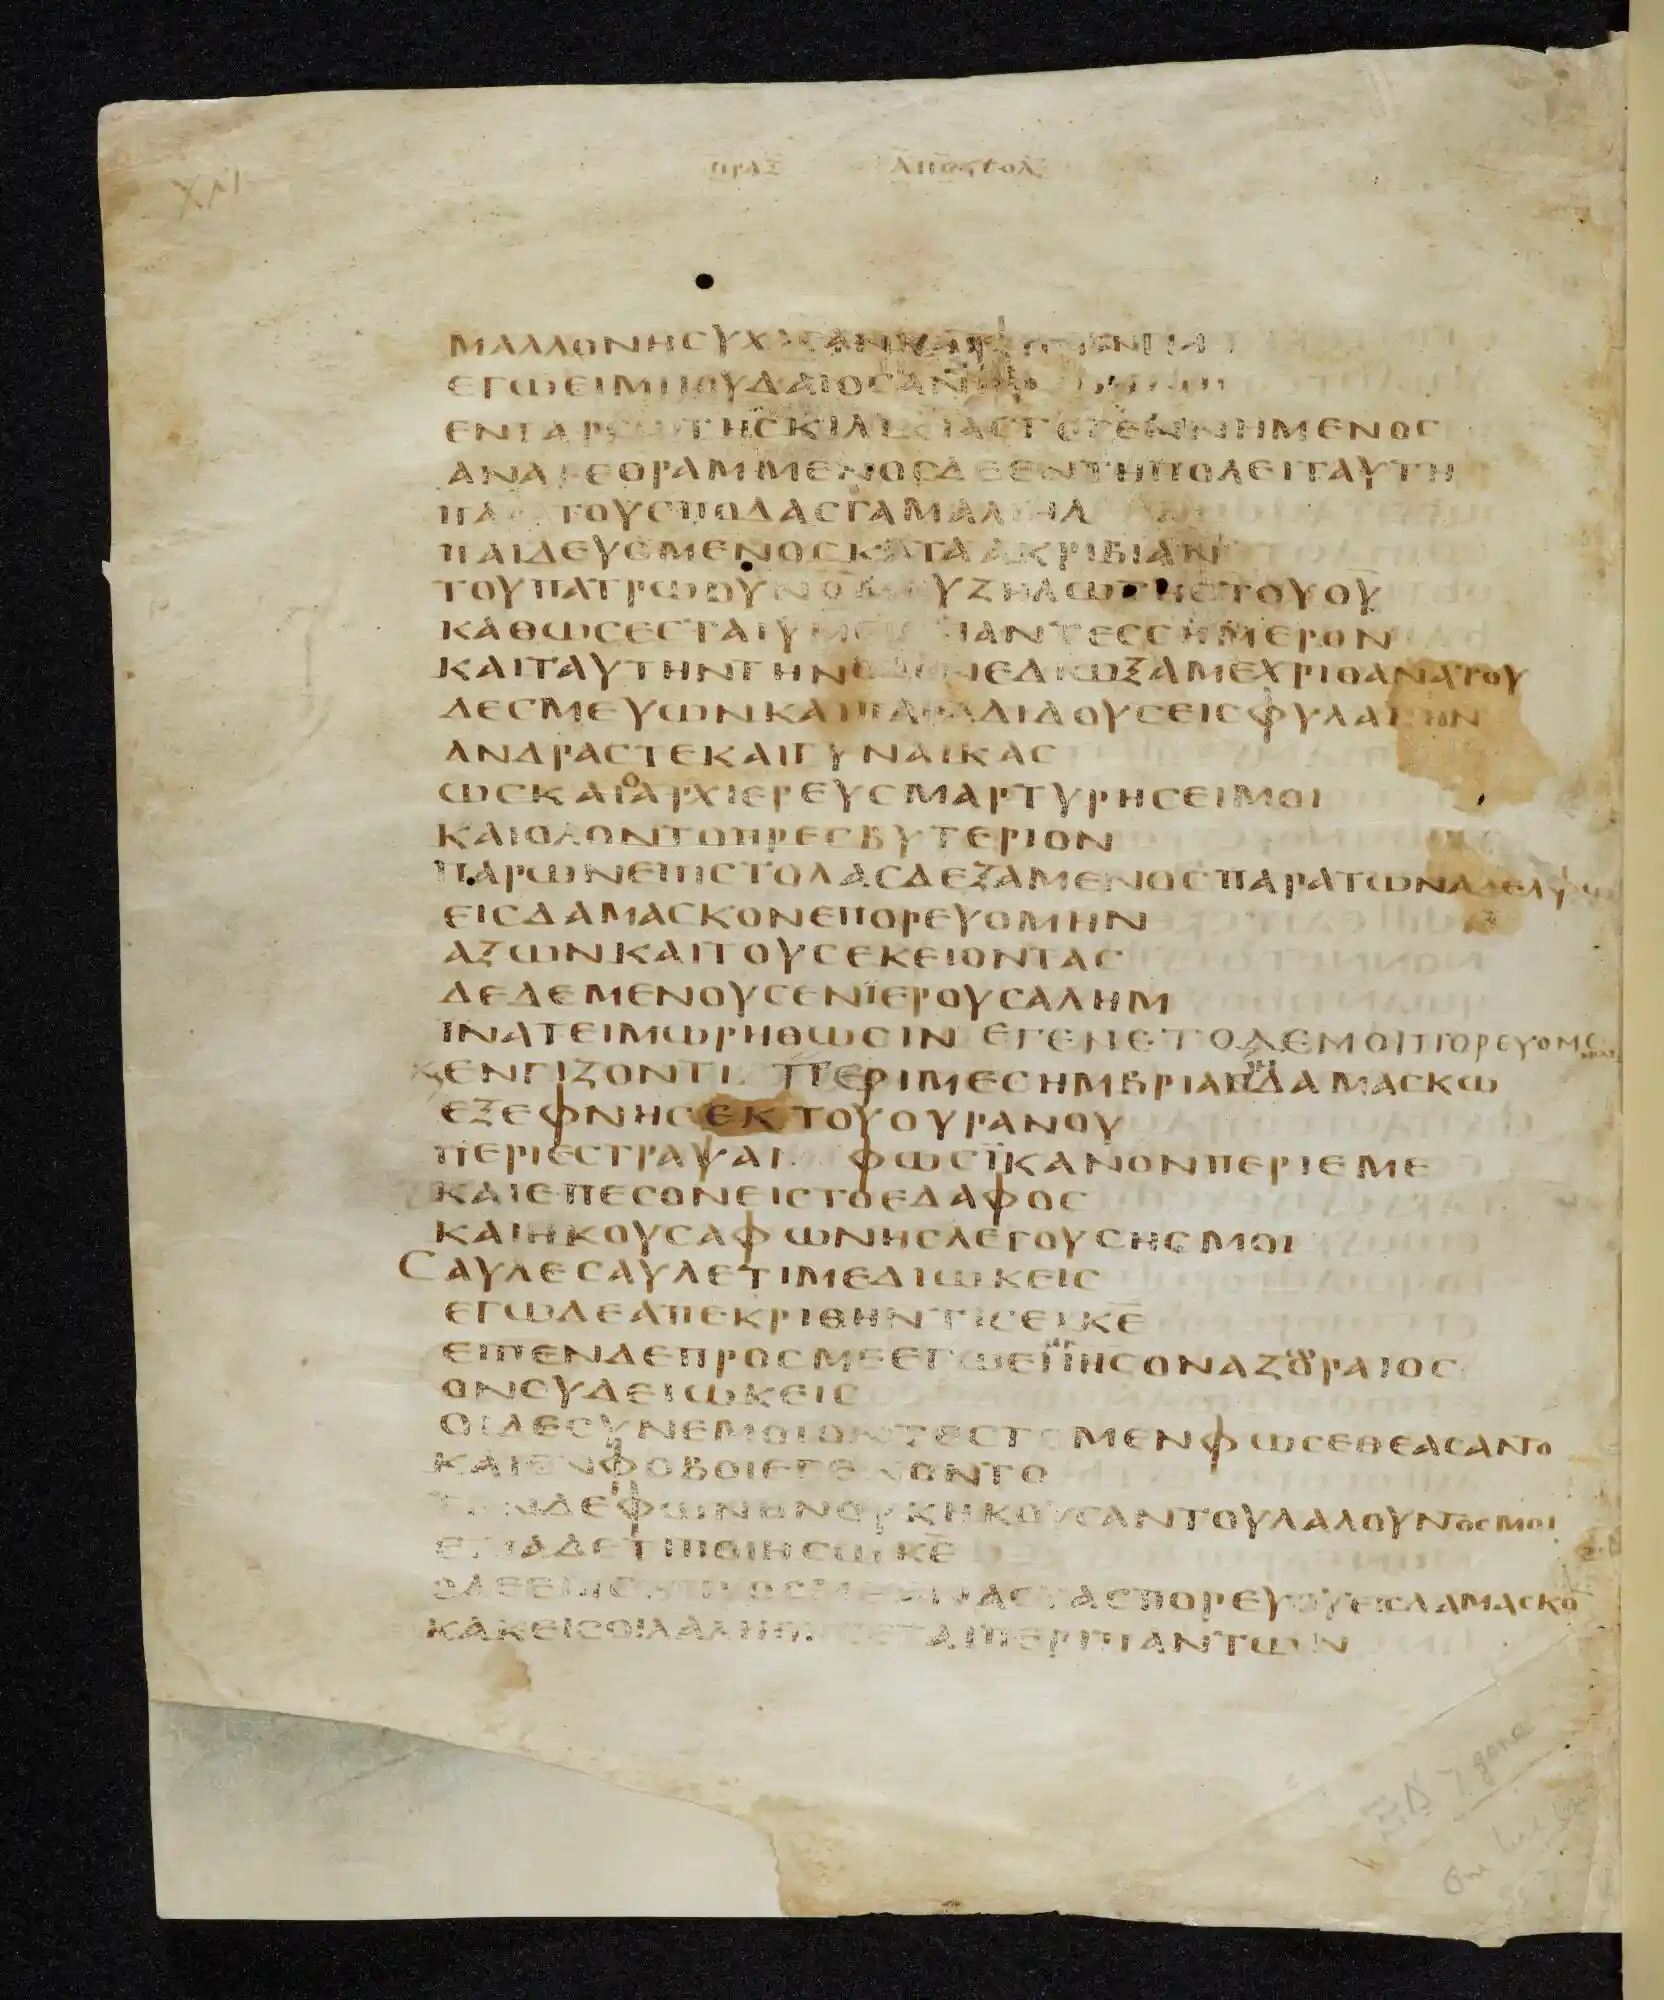 ΠΡΑΞ ΑΠΟΣΤΟΛ
ΜΑΛΛΟΝΗϹΥΧΑϹΑΝΚΑΙΦΗϹΙΝ
ΕΓΩΕΙΜΙΙΟΥΔΑΙΟϹΑΝΗΡ
ΕΝΤΑΡϹΩΤΗϹΚΙΛΙΚΙΑϹΓΕΓΕΝΝΗΜΕΝΟϹ
ΑΝΑΤΕΘΡΑΜΜΕΝΟϹΔΕΕΝΤΗΠΟΛΕΙΤΑΥΤΗ
ΠΑΡΑΤΟΥϹΠΟΔΑϹΓΑΜΑΛΙΗΛ
ΠΑΙΔΕΥΟΜΕΝΟϹΚΑΤΑΑΚΡΙΒΙΑΝ
ΤΟΥΠΑΤΡΩΟΥΝΟΜΟΥΖΗΛΩΤΗϹΤΟΥΘ̅Υ̅
ΚΑΘΩϹΕϹΤΑΙΥΜΕΙϹΠΑΝΤΕϹϹΗΜΕΡΟΝ
ΚΑΙΤΑΥΤΗΝΤΗΝΟΔΟΝΕΔΙΩΞΑΜΕΧΡΙΘΑΝΑΤΟΥ
ΔΕϹΜΕΥΩΝΚΑΙΠΑΡΑΔΙΔΟΥϹΕΙϹΦΥΛΑΚΗΝ
ΑΝΔΡΑϹΤΕΚΑΙΓΥΝΑΙΚΑϹ
ΩϹΚΑΙΟΑΡΧΙΕΡΕΥϹΜΑΡΤΥΡΗϹΕΙΜΟΙ
ΚΑΙΟΛΟΝΤΟΠΡΕϹΒΥΤΕΡΙΟΝ
ΠΑΡΩΝΕΠΙϹΤΟΛΑϹΔΕΞΑΜΕΝΟϹΠΑΡΑΤΩΝΑΔΕΛΦΩ
ΕΙϹΔΑΜΑϹΚΟΝΕΠΟΡΕΥΟΜΗΝ
ΑΞΩΝΚΑΙΤΟΥϹΕΚΕΙΟΝΤΑϹ
ΔΕΔΕΜΕΝΟΥϹΕΝΪΕΡΟΥϹΑΛΗΜ
ΪΝΑΤΕΙΜΩΡΗΘΩϹΙΝ ΕΓΕΝΕΤΟΔΕΜΟΙΠΟΡΕΥΟΜΕ
ΚΕΝΓΙΖΟΝΤΙ ΠΕΡΙΜΕϹΗΜΒΡΙΑΝΔΑΜΑϹΚΩ
ΕΞΕΦΝΗϹΕΚΤΟΥΟΥΡΑΝΟΥ
ΠΕΡΙΕϹΤΡΑΨΑΙ ΦΩϹΪΚΑΝΟΝΠΕΡΙΕΜΕ
ΚΑΙΕΠΕϹΟΝΕΙϹΤΟΕΔΑΦΟϹ
ΚΑΙΗΚΟΥϹΑΦΩΝΗϹΛΕΓΟΥϹΗϹΜΟΙ
ϹΑΥΛΕϹΑΥΛΕΤΙΜΕΔΙΩΚΕΙϹ
ΕΓΩΔΕΑΠΕΚΡΙΘΗΝΤΙϹΕΙΚ̅Ε̅
ΕΙΠΕΝΔΕΠΡΟϹΜΕΕΓΩΕΙΜΙΙΗϹΟΝΑΖΟΡΑΙΟϹ
ΟΝϹΥΔΕΙΩΚΕΙϹ
ΟΙΔΕϹΥΝΕΜΟΙΟΝΤΕϹΤΟΜΕΝΦΩϹΕΘΕΑϹΑΝΤΟ
ΚΑΙΕΝΦΟΒΟΙΕΓΕΝΟΝΤΟ
ΤΗΝΔΕΦΩΝΗΝΟΥΚΗΚΟΥϹΑΝΤΟΥΛΑΛΟΥΝΤΟϹΜΟΙ
ΕΙΠΑΔΕΤΙΠΟΙΗϹΩΚ̅Ε̅
ΟΔΕΕΙΠΕΝΠΡΟϹΜΕΑΝΑϹΤΑϹΠΟΡΕΥΟΥΕΙϹΔΑΜΑϹΚΟ
ΚΑΚΕΙϹΟΙΛΑΛΗΘΗϹΕΤΑΙΠΕΡΙΠΑΝΤΩΝ